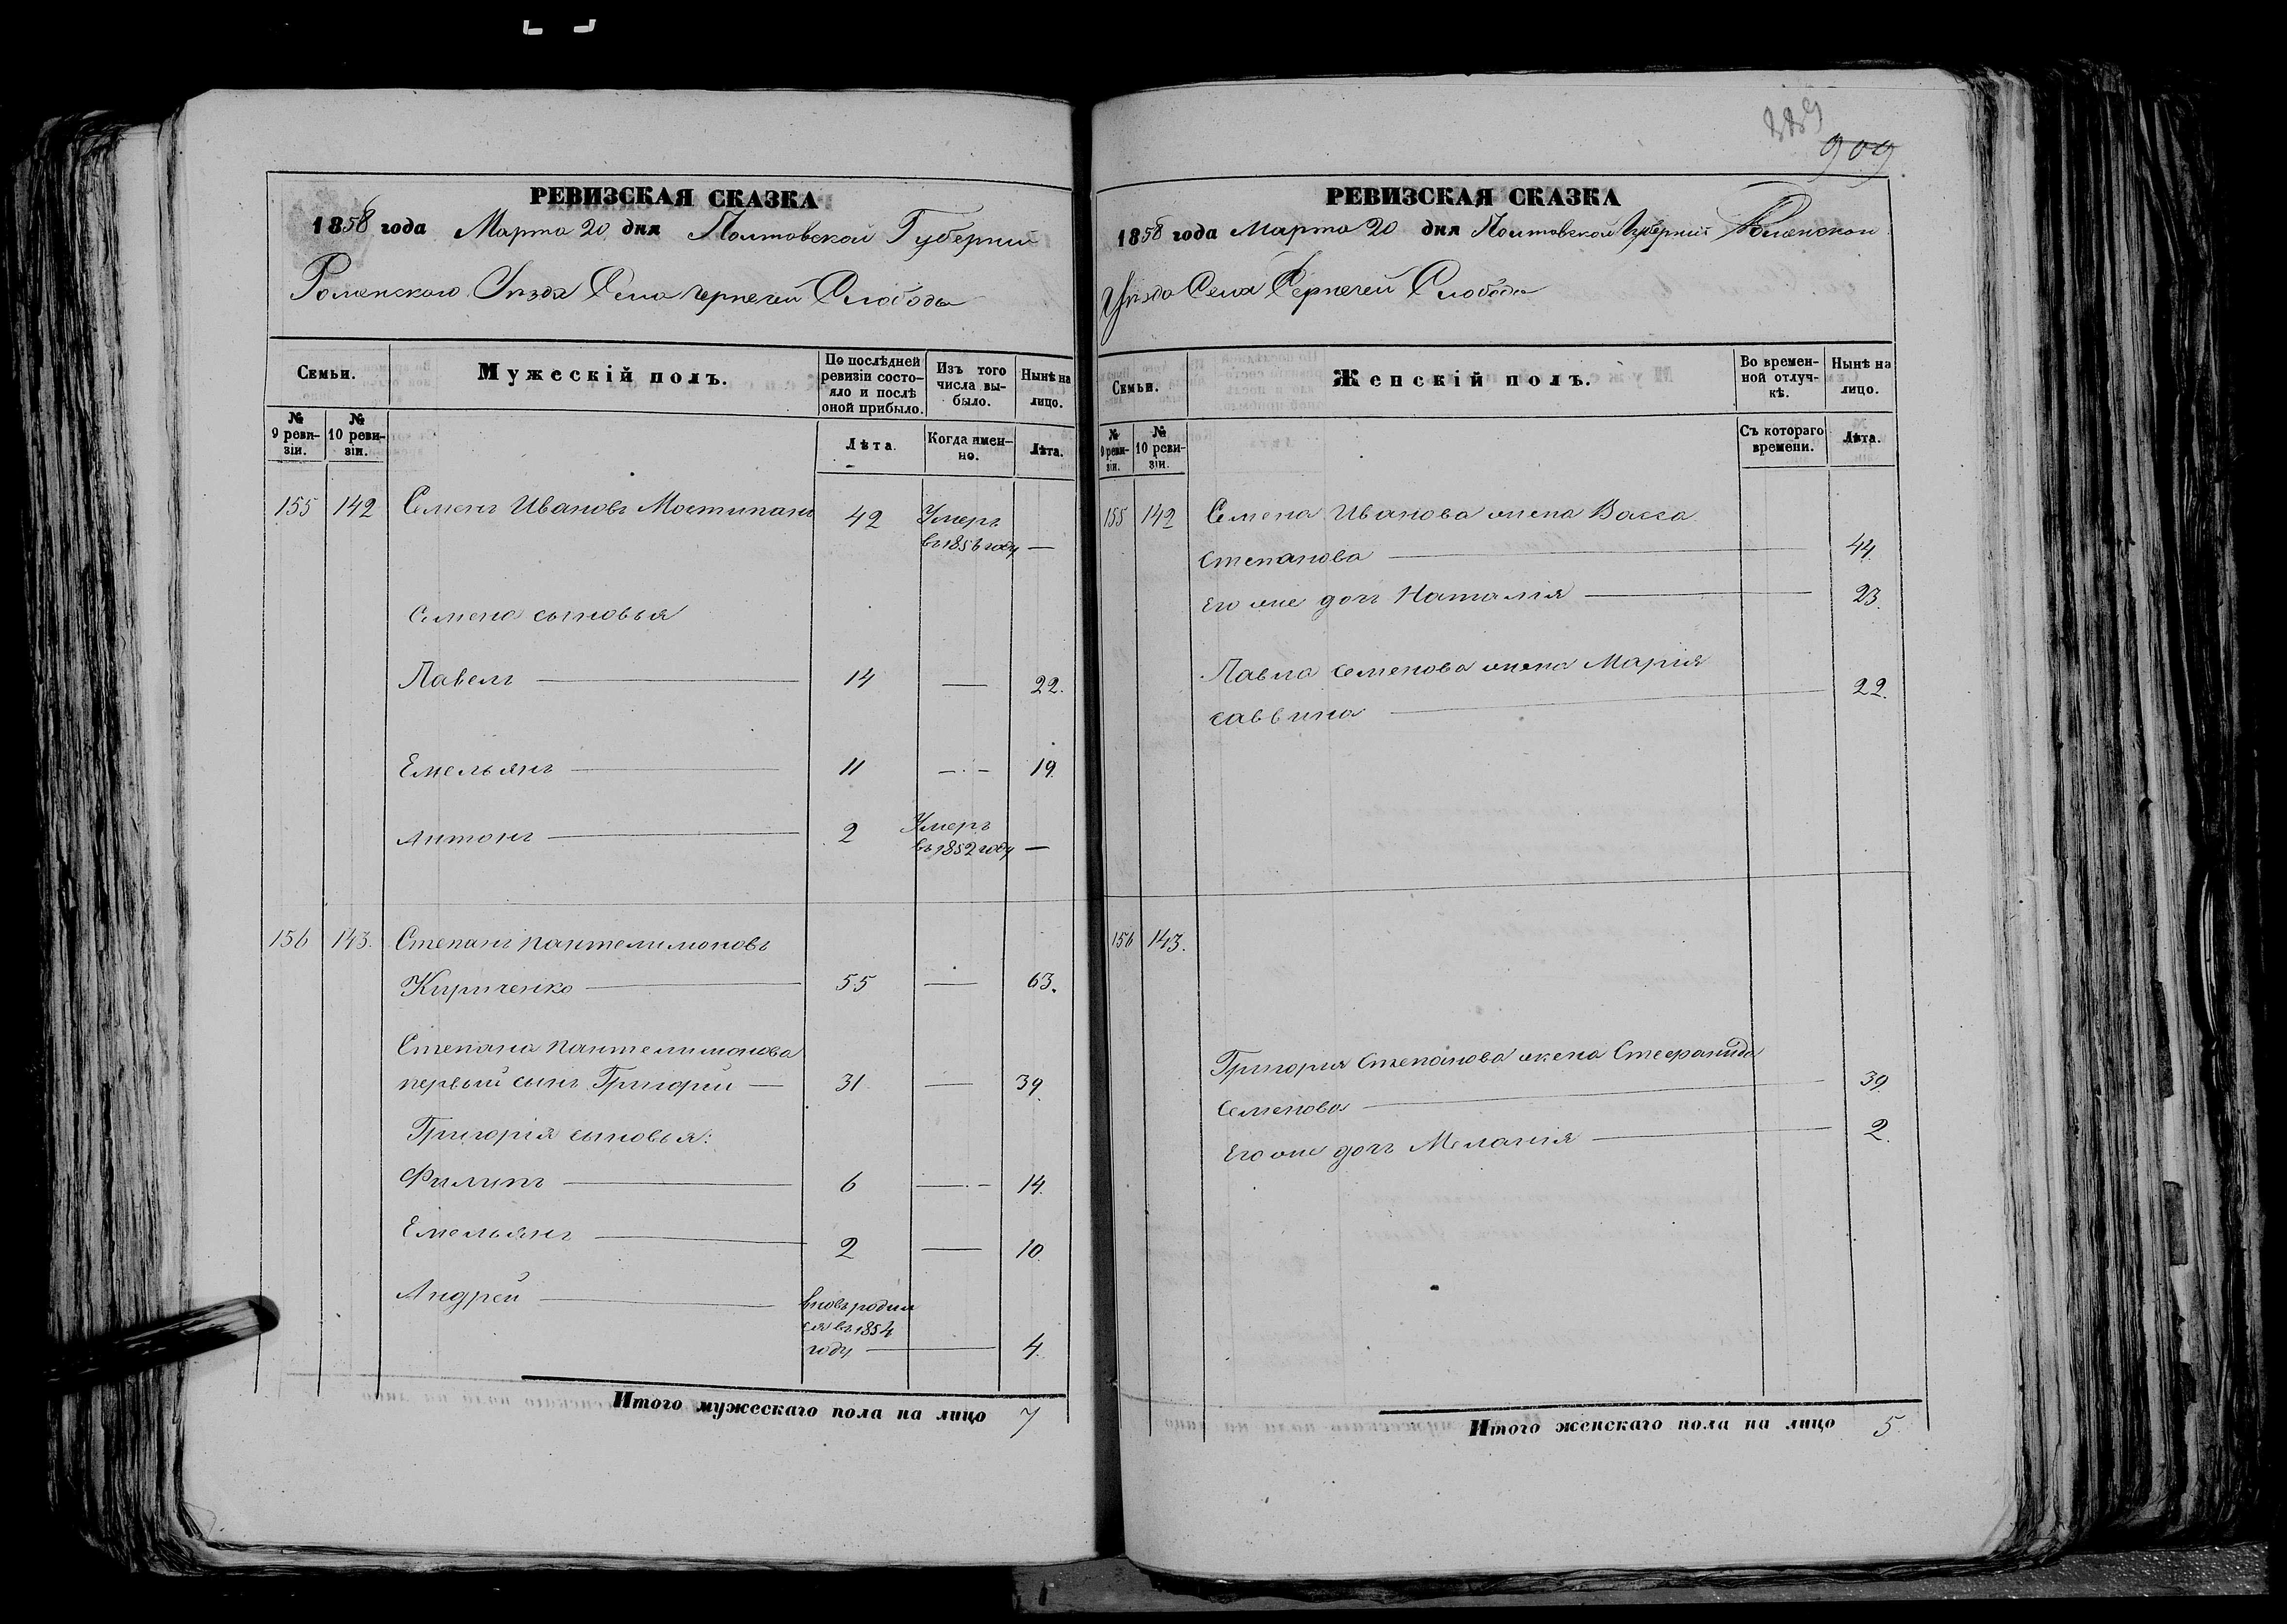 РЕВИЗСКАЯ СКАЗКА
1858 года Марта 20 дня Полтавской Губернии
Роменского Уѣзда Села Чернечей Слободы
Семьи.
Мужескій полъ.
По послѣдней ревизіи состояло и послѣ оной прибыло.
Изъ того числа выбыло.
Нынѣ на лицо.
№ 9 ревизіи.
№ 10 ревизіи.
Лѣта.
Когда именно.
Лѣта.
155 142 Семенъ Ивановъ 42 Умеръ
въ 1856 году —
Семена сыновья
Павелъ — 14 — 22.
Емельянъ — 11 — 19.
Антонъ — 2 Умеръ
въ 1852 году —
156 143. Степанъ Пантелимоновъ
Кириченко — 55 — 63.
Степана Пантелимонова
первый сынъ Григорей — 31 — 39.
Григорія сыновья:
Филипъ — 6 — 14.
Емельянъ — 2 — 10.
Андрей — вновь родил
ся въ 1854
году — 4.
Итого мужескаго пола на лицо 7
909
РЕВИЗСКАЯ СКАЗКА
1858 года Марта 20 дня Полтавской Губерніи Роменского
Уѣзда Села Чернечей Слободы
Семьи.
Женскій полъ.
Во временной отлучкѣ.
Нынѣ на лицо.
№ 9 ревизіи.
№ 10 ревизіи.
Съ котораго времени.
Лѣта.
155 142 Семена Иванова жена Васса
Степанова — 44.
Его же дочь Наталія — 23.
Павла Семенова жена Марія
Саввина — 22.
156 143.
Григория Степанова жена Стефанида
Семенова — 39.
Его же дочь Меланія — 2.
Итого женскаго пола на лицо 5.